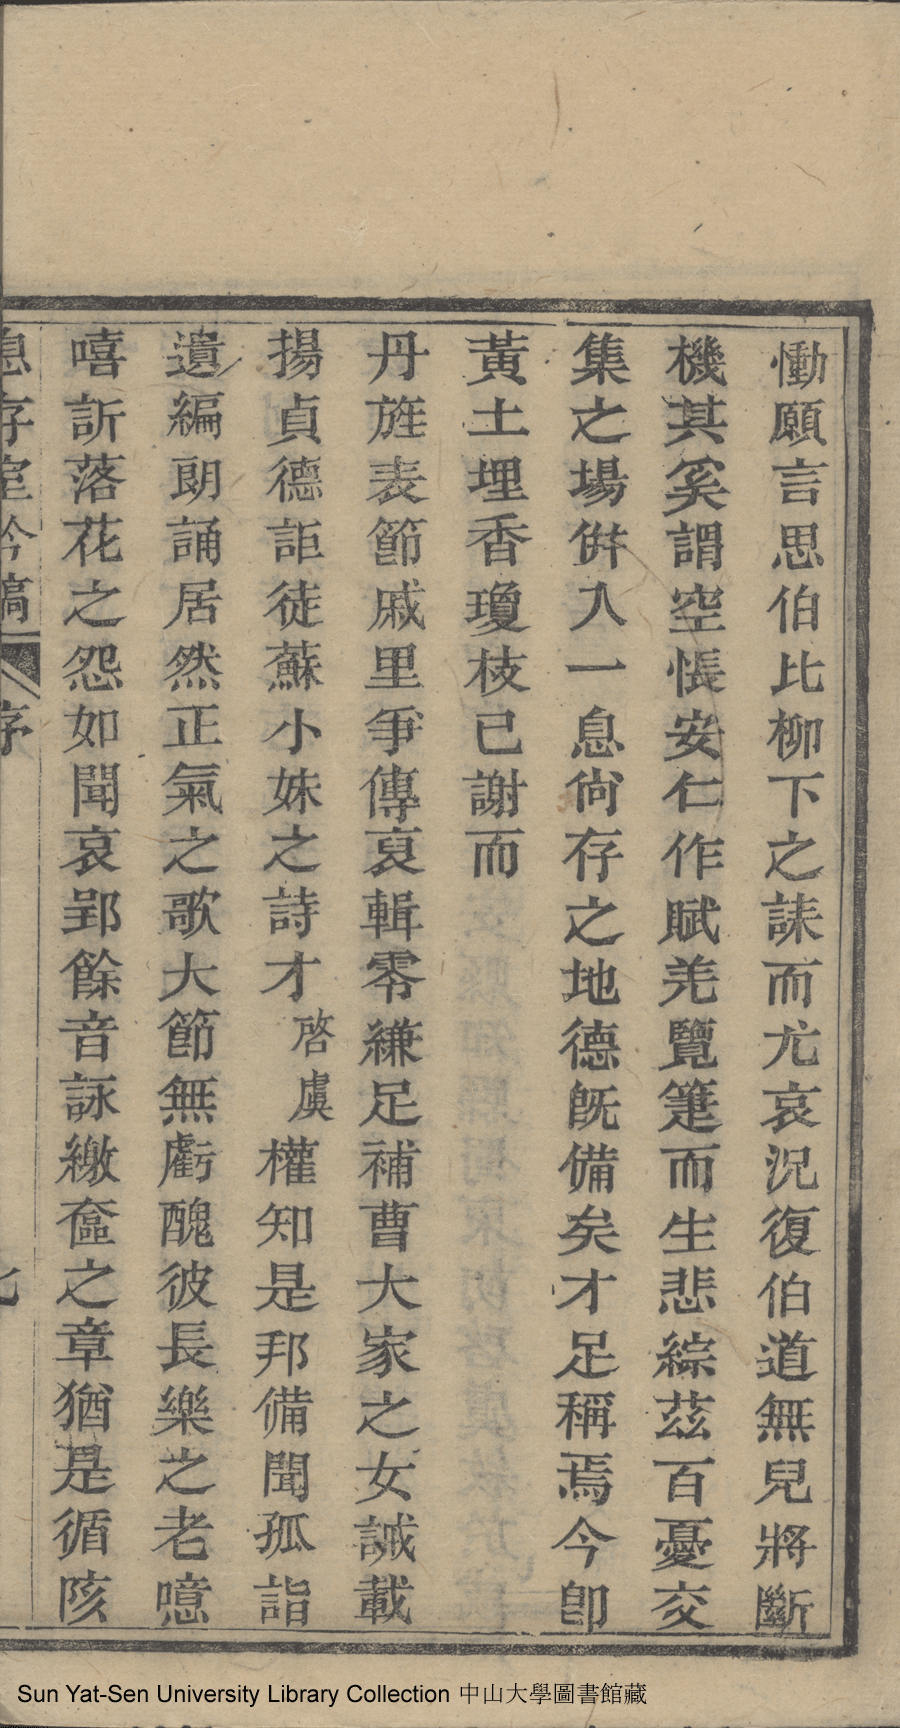 慟願言思伯比柳下之誄而尤哀況復伯道無兒將斷
機其奚謂空悵安仁作賦羌覽筆而生悲綜茲百憂交
集之場倂入一息尙存之地德旣備矣才足稱焉今卽
黃土埋香瓊枝已謝而
丹旌表節戚里爭傳裒輯零縑足補曹大家之女誡載
揚貞德詎徒蘇小妹之詩才啓虞權知是邦備聞孤詣
遺編朗誦居然正氣之歌大節無虧醜彼長樂之老噫
嘻訢落花之怨如聞哀郢餘音詠繳奩之章猶是循陔
息存室吟稿
序
七
Sun Yat-Sen University Library Collection 中山大學圖書館藏